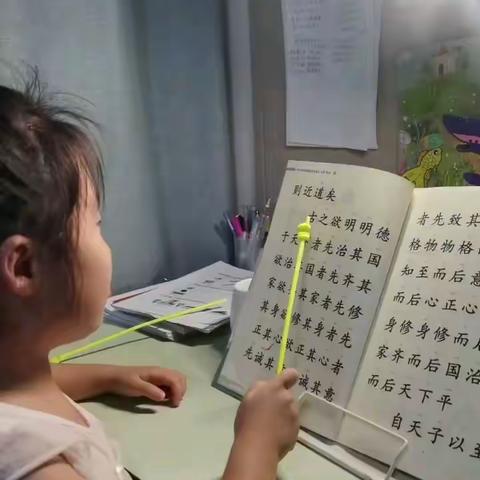 则近道矣
古之欲明明德
于天者先治其国
欲治国者先齐其
家欲其家者先修
其身修其身者先
正其心欲正其心者
先诚其诚其意
者先致其
格物物格
知至而后意
而后心正心
身修身修而
家齐而后国治
而后天下平
自天子以至